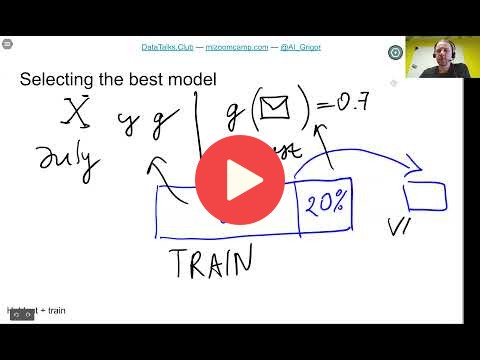 DataTalks.Club — mlzoomcamp.com — @Al_Grigor
Selecting the best model
X y g g( ) = 0.7
July
20%
TRAIN
+ train